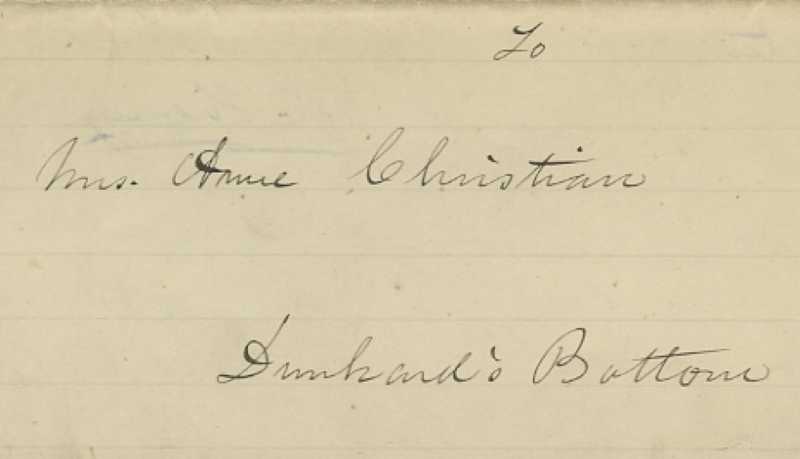 To
Mrs. Anne Christian
Dunkard's Bottom